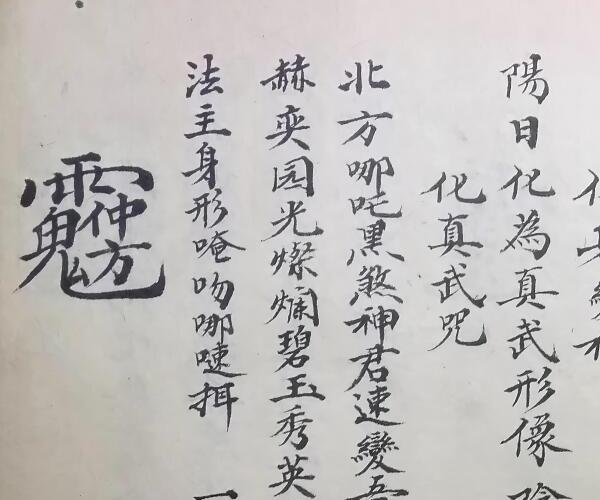 陽日化為真武形像
化真武咒
北方哪吒黑煞神君速變吾
赫奕园光燦爛碧玉秀英
法主身形唵吻哪𠻴挕
仲方